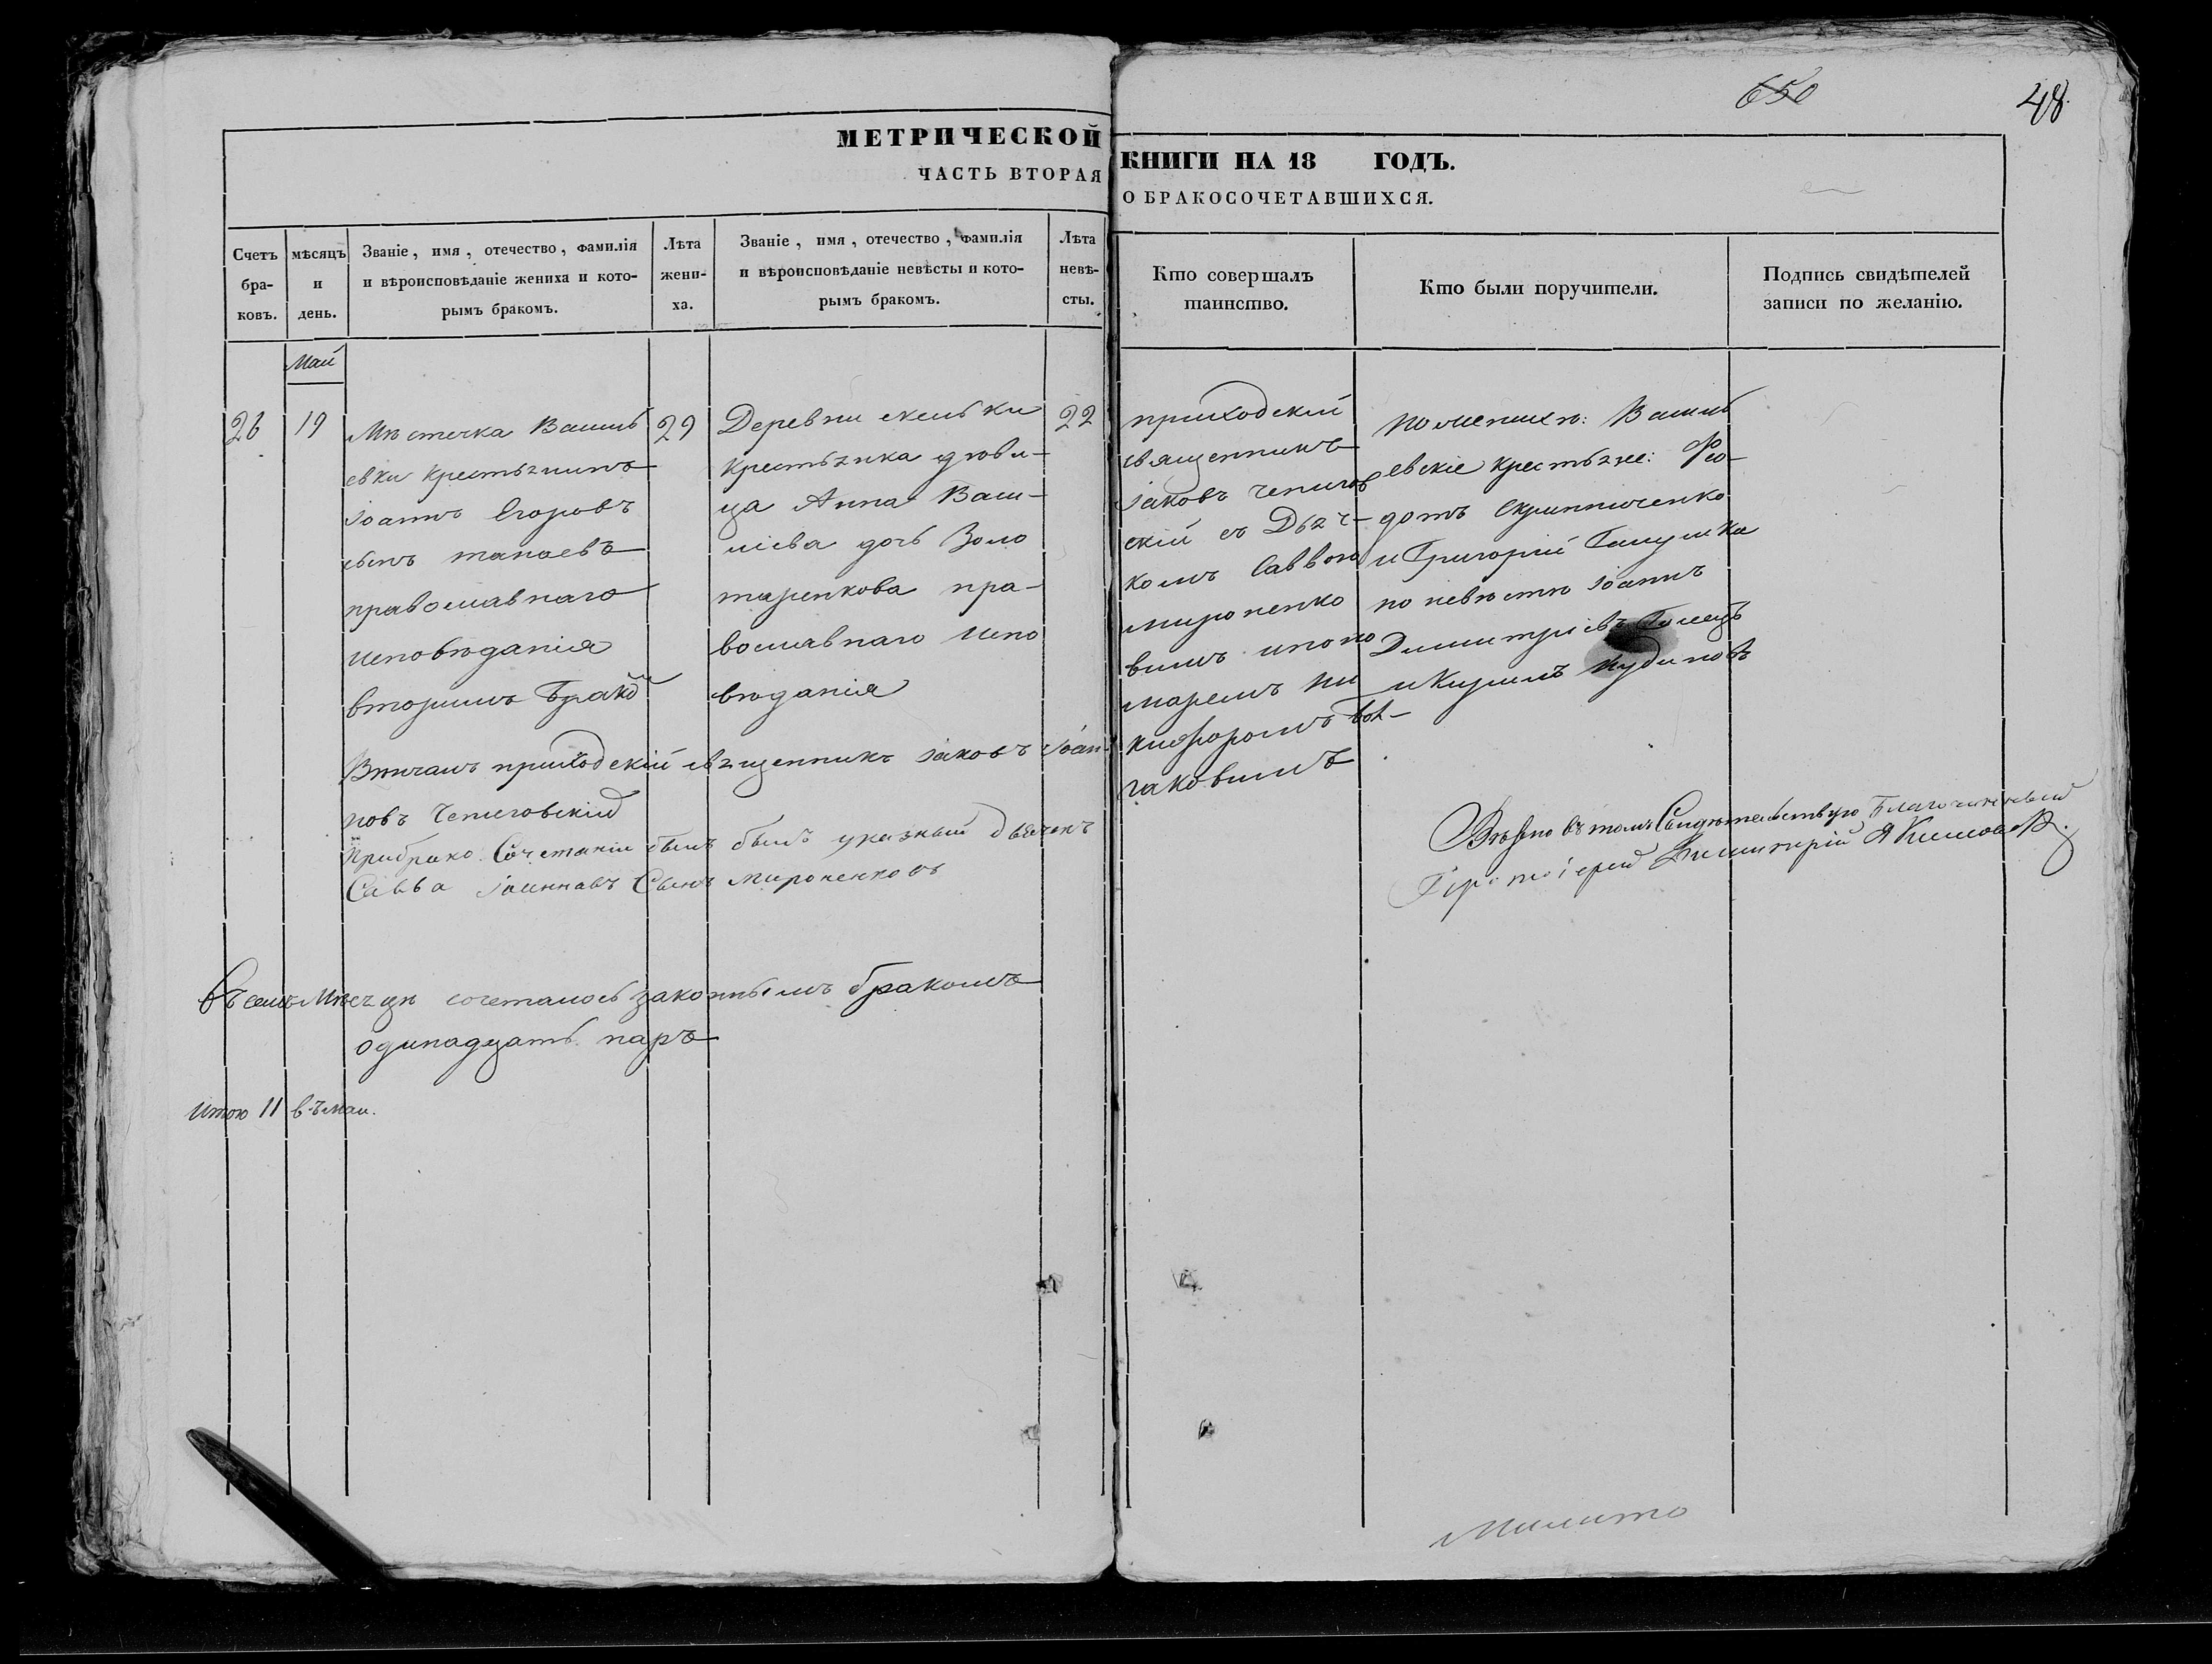 650
48.
МЕТРИЧЕСКОЙ
ЧАСТЬ ВТОРАЯ
КНИГИ НА 18 ГОДЪ.
О БРАКОСОЧЕТАВШИХСЯ.
Счетъ
бра-
ковъ.
мѣсяцъ
и
день.
Званіе, имя, отечество, фамилія
и вѣроисповѣданіе жениха и кото-
рымъ бракомъ.
Лѣта
жени-
ха.
Званіе, имя, отечество, фамилія
и вѣроисповѣданіе невѣсты и кото-
рымъ бракомъ.
Лѣта
невѣ-
сты.
Кто совершалъ
таинство.
Кто были поручители.
Подпись свидѣтелей
записи по желанію.
Май
26
19
Мѣстечка Васил
евки крестьянинъ
Іоаннъ Егоровъ
сынъ
православнаго
исповѣданія
вторымъ бракомъ
29
Деревни
крестьянка дѣви-
ца Анна Васи-
лiева дочь Золо
таренкова пра-
вославнаго испо
вѣданія
22
приходскій
священникъ
Іаковъ Чернигов
скій съ Дьяч-
комъ Саввою
Мироненко
вымъ и поно
маремъ Ни
кифоромъ
гаковымъ
по женихѣ: Васил
евскіе крестьяне: Фео-
дотъ Скрипниченко
и Григорій Галушка
по невѣстѣ Іоаннъ
Димитріевъ
и Кирилъ Кудиновъ
Вѣнчалъ приходскій священникъ Іаковъ Іоан-
новъ Черниговскій
При бракосочетаніи былъ указный дьячекъ
Савва Іоанновъ Сынъ Мироненковъ
Вѣрно въ томъ Свидѣтельствую Благочинный
Протоіерей Димитрій Якимовъ.
Въ семъ Мѣсяцѣ сочеталось законнымъ бракомъ
одинадцать паръ
Итого 11 въ маи.